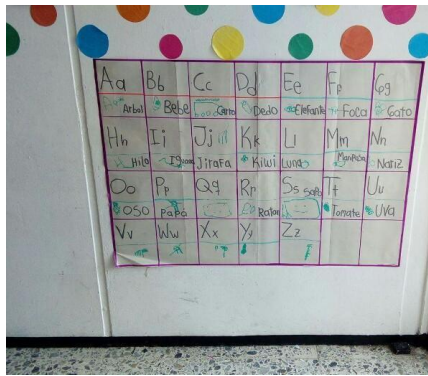 Aa Bb Cc Dd Ee Ff Gg
Arbol Bebe Carro Dedo Elefante Foca Gato
Hh Ii Jj Kk Ll Mm Nn
Hilo Iguana Jirafa Kiwi Luna Manzana Nariz
Oo Pp Qq Rr Ss Tt Uu
Oso Papá Raton Sapo Tomate Uva
Vv Ww Xx Yy Zz